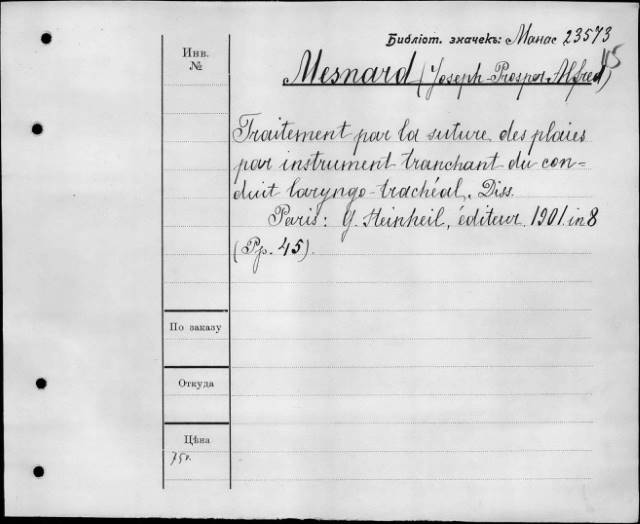 Библіот. значекъ: Манас 23573
45
Инв.
№
Mesnard (Joseph-Prosper-Alfred)
Traitement par la suture des plaies
par instrument tranchant du con=
duit laryngo-trachéal. Diss.
Paris: G. Steinheil, éditeur. 1901. in 8
(Pp. 45).
По заказу
Откуда
Цѣна
75к.